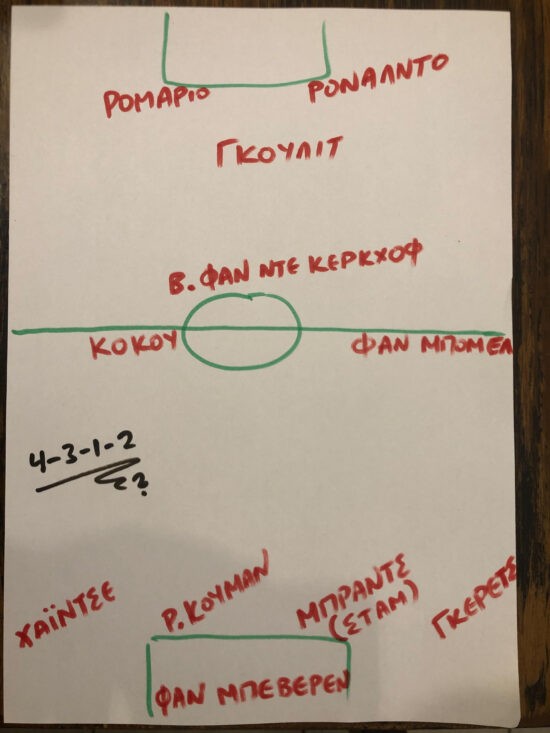 ΡΟΜΑΡΙΟ ΡΟΝΑΛΝΤΟ
ΓΚΟΥΛΙΤ
Β. ΦΑΝ ΝΤΕ ΚΕΡΚΧΟΦ
ΚΟΚΟΥ ΦΑΝ ΜΠΟΜΕΛ
4-3-1-2
?
ΧΑΪΝΤΣΕ Ρ. ΚΟΥΜΑΝ ΜΠΡΑΝΤΣ ΓΚΕΡΕΤΣ
(ΣΤΑΜ)
ΦΑΝ ΜΠΕΒΕΡΕΝ